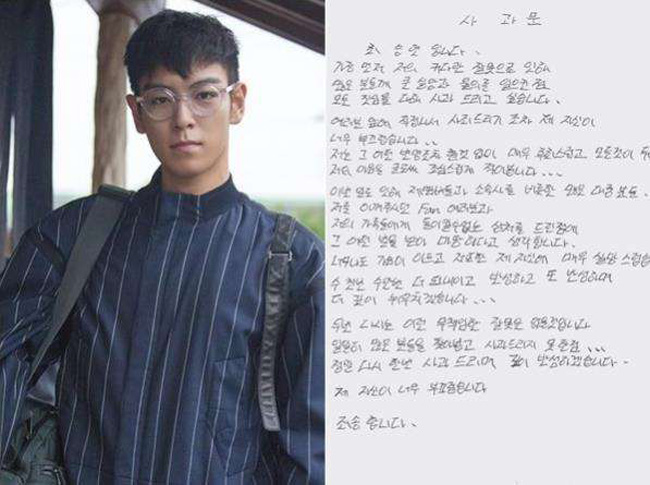 사 과 문
최 승현 입니다.
가장 먼저 저의 커다란 잘못으로 인하여
많은 분들께 큰 실망과 물의를 일으킨 점
모든 진심을 다해 사과 드리고 싶습니다.
여러분 앞에 직접나서 사죄드리기 조차 제 자신이
너무 부끄럽습니다..
저는 그 어떤 변명조차 할것 없이 매우 후회스럽고 모든것이
저의 마음을 글로써 조심스럽게 적어봅니다..
이번 일로 인해 저의 멤버들과 소속사를 비롯한 많은 대중 분들.
저를 아껴주시던 Fan 여러분과
저의 가족들에게 돌이킬수없는 상처를 드린점에
그 어떤 벌을 받아 마땅하다고 생각합니다.
너무나도 가슴이 아프고 제 자신에 매우 실망
수 천번 수만번 더 되내이고 반성하고 또 반성하며
더 깊이 뉘우치겠습니다...
두번 다시는 이런 무책임한 잘못은 없을것입니다
일일이 많은 분들을 찾아뵙고 사과드리지 못한점...
정말 다시 한번 사과 드리며 깊이 반성하겠습니다.
제 자신이 너무 부끄럽습니다
죄송합니다.